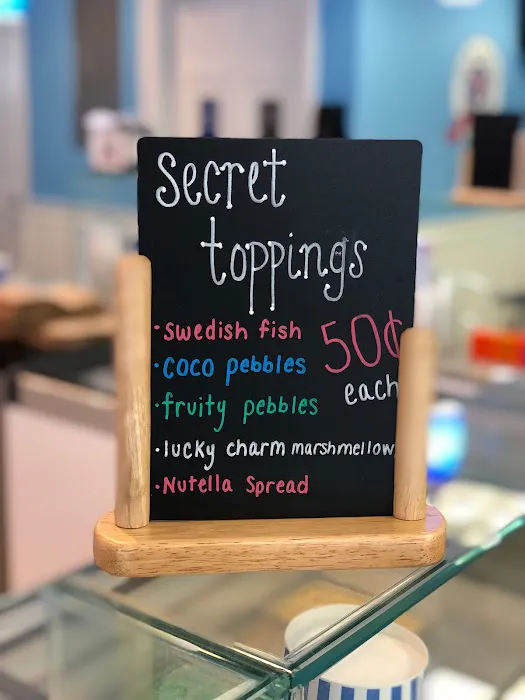 Secret
toppings
·Swedish fish
50¢
·Coco pebbles
each
·fruity pebbles
·lucky charm marshmellow
·Nutella Spread